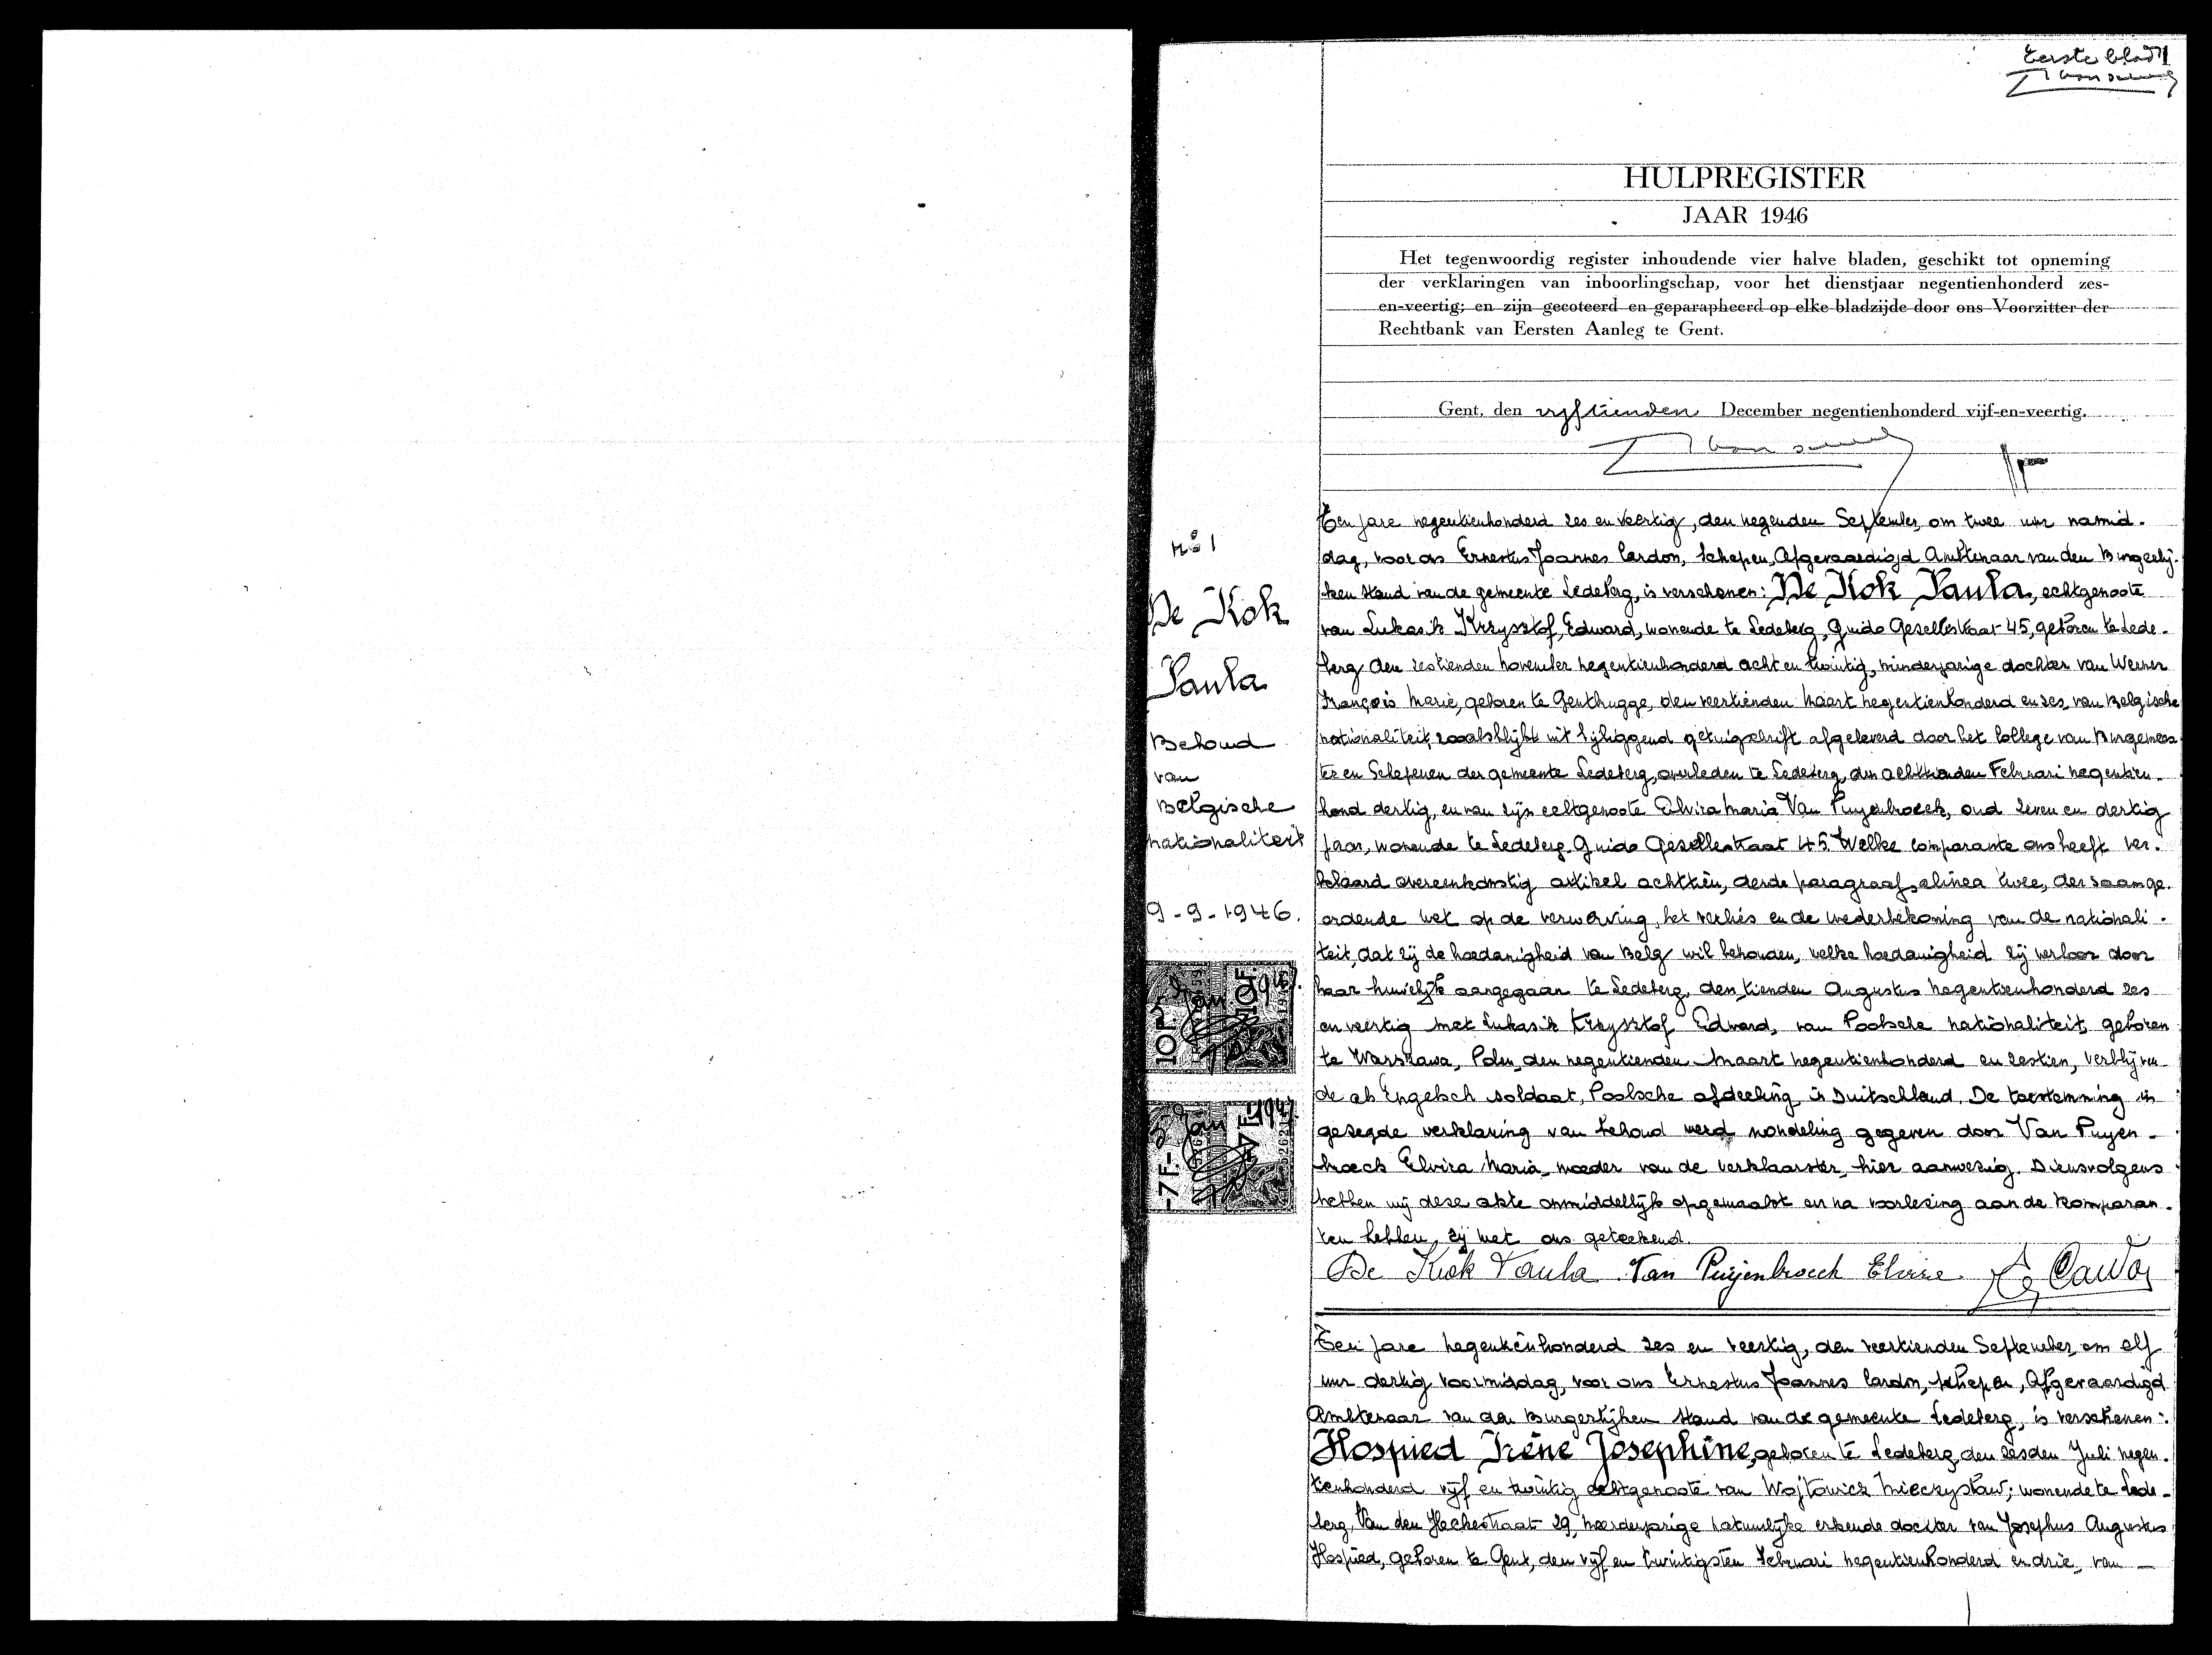 Eerste blad 1
HULPREGISTER
JAAR 1946
Het tegenwoordig register inhoudende vier halve bladen, geschikt tot opneming
der verklaringen van inboorlingschap, voor het dienstjaar negentienhonderd zes-
en-veertig; en zijn gecoteerd en geparapheerd op elke bladzijde door ons Voorzitter der
Rechtbank van Eersten Aanleg te Gent.
Gent, den vyftienden December negentienhonderd vijf-en-veertig.
N° 1
De Kok
Paula
Behoud
van
Belgische
nationaliteit
9-9-1946.
10 F. 5 Jan 1947. 10 F.
7 F. Jan 1947.
Ten jare negentienhonderd zes en veertig, den negenden September, om twee uur namid-
dag, voor ons Ernestus Joannes Cardon, Schepen, Afgevaardigd Ambtenaar van den Burgerlij-
ken stand van de gemeente Ledeberg, is verschenen: De Kok Paula, echtgenoote
van Lukasik Krzysztof, Edward, wonende te Ledeberg, Guido Gezellestraat 45, geboren te Lede-
berg den zestienden november negentienhonderd acht en twintig, minderjarige dochter van Werner
François Marie, geboren te Gentbrugge, den veertienden Maart negentienhonderd en zes, van Belgische
nationaliteit, zooals blijkt uit bijliggend getuigschrift afgeleverd door het College van Burgemees-
ter en Schepenen der gemeente Ledeberg, overleden te Ledeberg, den achttienden Februari negentien-
hond dertig, en van zijn echtgenoote Elvira Maria Van Puyenbroeck, oud zeven en dertig
jaar, wonende te Ledeberg Guido Gezellestraat 45. Welke comparante ons heeft ver-
klaard overeenkomstig artikel achttien, derde paragraaf, alinea twee, der saamge-
ordende wet op de verwerving, het verlies en de wederbekoming van de nationali-
teit, dat zij de hoedanigheid van Belg wil behouden, welke hoedanigheid zij verloor door
haar huwelijk aangegaan te Ledeberg, den tienden Augustus negentienhonderd zes
en veertig met Lukasik Krzysztof Edward, van Poolsche nationaliteit, geboren
te Warszawa, Polen, den negentienden Maart negentienhonderd en zestien, verblijven-
de als Engelsch soldaat, Poolsche afdeeling in Duitschland. De toestemming in
gezegde verklaring van behoud werd mondeling gegeven door Van Puyen-
broeck Elvira Maria, moeder van de verklaarster, hier aanwezig. Diensvolgens
hebben wij deze akte onmiddellijk opgemaakt en na voorlezing aan de komparan-
ten hebben, zij met ons geteekend.
De Kok Paula Van Puyenbroeck Elvire Cardon
Ten jare negentienhonderd zes en veertig, den veertienden September om elf
uur dertig voormiddag, voor ons Ernestus Joannes Cardon, schepen, Afgevaardigd
Ambtenaar van den Burgerlijken stand van de gemeente Ledeberg, is verschenen:
Hospied Irène Josephine, geboren te Ledeberg, den zesden Juli negen-
tienhonderd vijf en twintig echtgenoote van Wojtowicz Mieczyslaw; wonende te Lede-
berg, Van den Heckestraat 29, meerderjarige natuurlijke erkende dochter van Josephus Augustus
Hospied, geboren te Gent, den vijf en twintigsten Februari negentienhonderd en drie, van